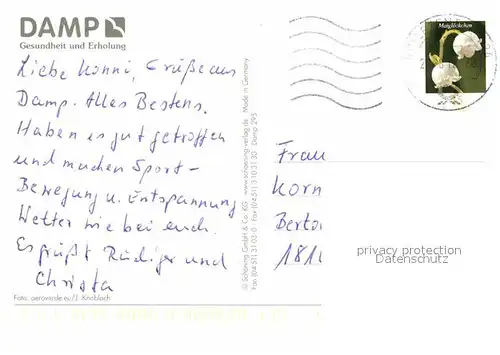 DAMP
Gesundheit und Erholung
Liebe Konni, Grüße aus
Damp. Alles Bestens.
Haben es gut getroffen
und machen Sport-
Bewegung u. Entspannung
Wetter wie bei euch.
Es grüßt Rüdiger und
Christa
Foto: aerowelt.eu/J. Knobloch
© Schöning GmbH & Co. KG · www.schoening-verlag.de · Made in Germany
Fon (04 51) 31 03 0 · Fax (04 51) 3 10 31 30 · Damp 295
Maiglöckchen
Frau
Korn
Berto
181
privacy protection
Datenschutz